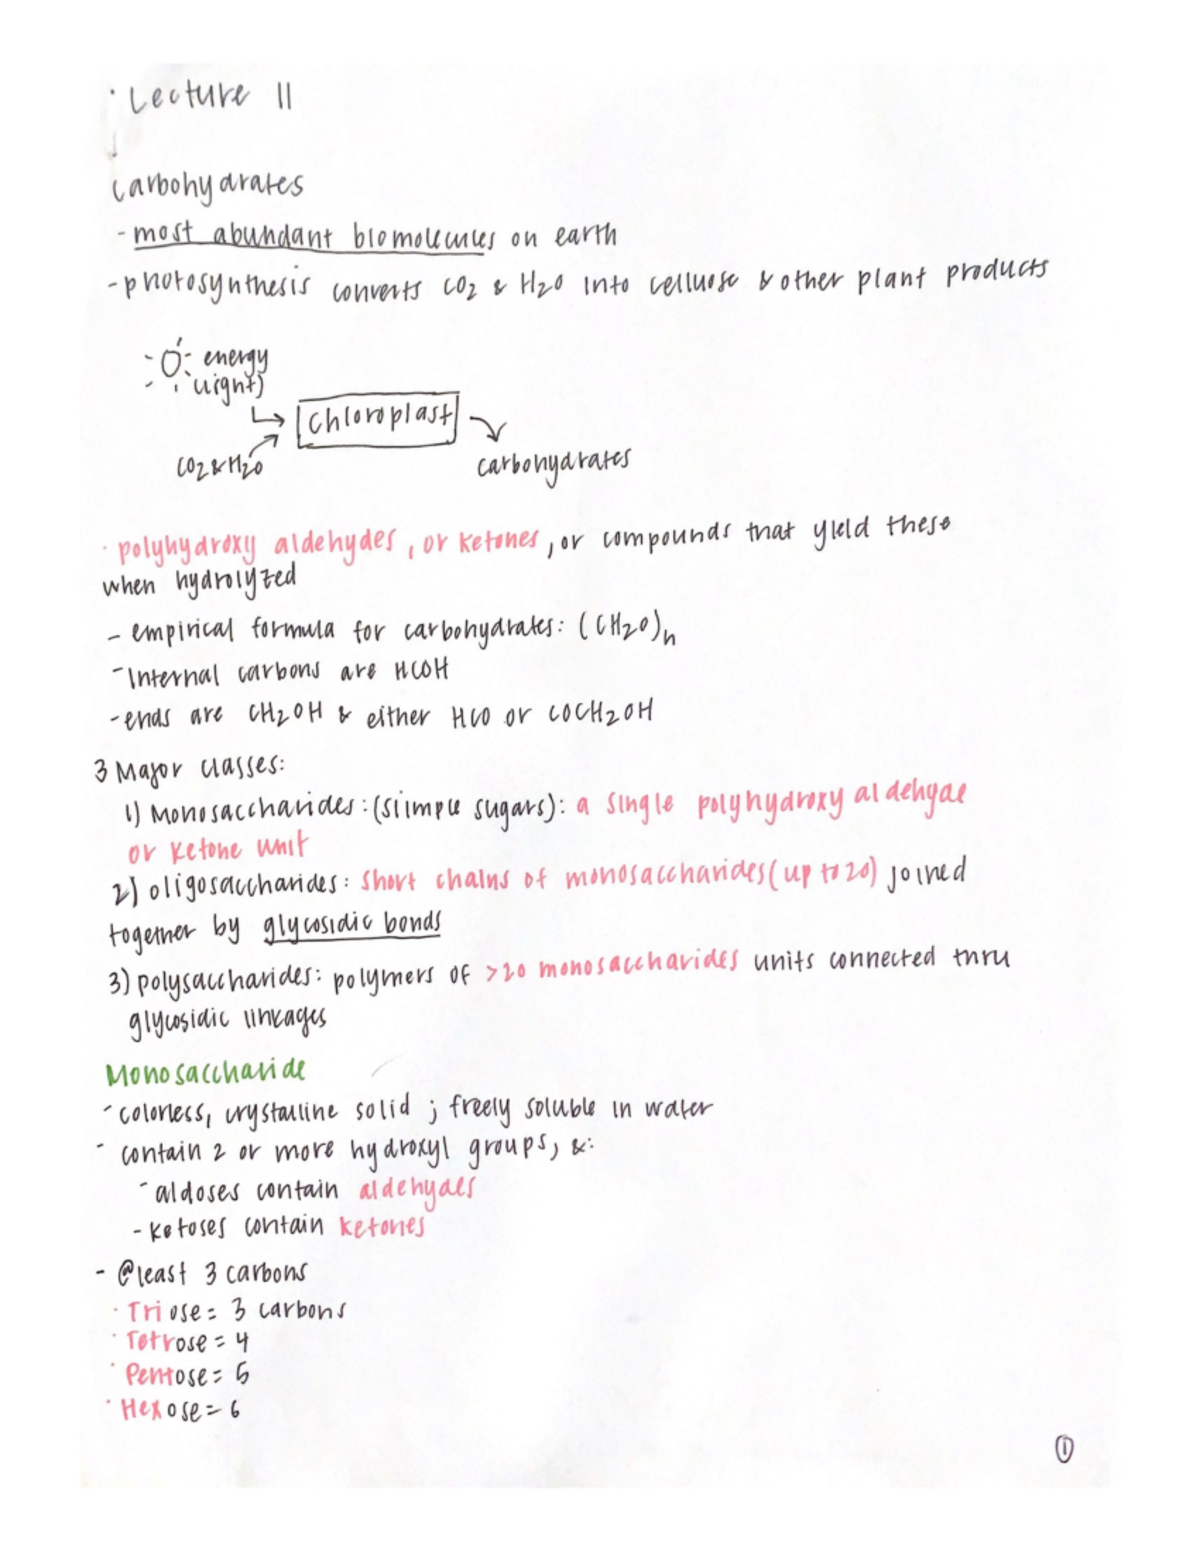 · Lecture 11
Carbohydrates
- most abundant biomolecules on earth
- photosynthesis converts CO2 & H2O into celluose & other plant products
energy
(light)
Chloroplast
CO2 & H2O
carbohydrates
· polyhydroxy aldehydes, or ketones, or compounds that yield these
when hydrolyzed
- empirical formula for carbohydrates: (CH2O)n
- Internal carbons are HCOH
- ends are CH2OH & either HCO or COCH2OH
3 Major classes:
1) Monosaccharides: (siimple sugars): a single polyhydroxy aldehyde
or ketone unit
2) oligosaccharides: short chains of monosaccharides (up to 20) joined
together by glycosidic bonds
3) polysaccharides: polymers of >20 monosaccharides units connected thru
glycosidic linkages
Monosaccharide
- colorless, crystalline solid; freely soluble in water
- contain 2 or more hydroxyl groups, &:
- aldoses contain aldehydes
- ketoses contain ketones
- @least 3 carbons
· Triose = 3 carbons
· Tetrose = 4
· Pentose = 5
· Hexose = 6
1